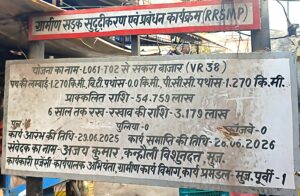 ग्रामीण सड़क सुदृढ़ीकरण एवं प्रबंधन कार्यक्रम (RRSMP)
योजना का नाम- L061-T02 से सकरा बाजार (VR 38)
पथ की लम्बाई-1.270 कि.मी., वि.टी पथांस-0.0 कि.मी. पी.सी.सी पथांस-1.270 कि.मी.
प्राक्कलित राशि- 54.759 लाख
6 साल तक रख-रखाव की राशि- 3.179 लाख
पुलिया-0
कार्य आरंभ की तिथि-29.06.2025 कार्य समाप्ति की तिथि-28.06.2026
संवेदक का नाम-अजय कुमार, कन्हौली विशुनदत्त, मुज.
कार्यकारी एजेंसी कार्यपालक अभियंता, ग्रामीण कार्य विभाग, कार्य प्रमंडल- मुज. पूर्वी-1